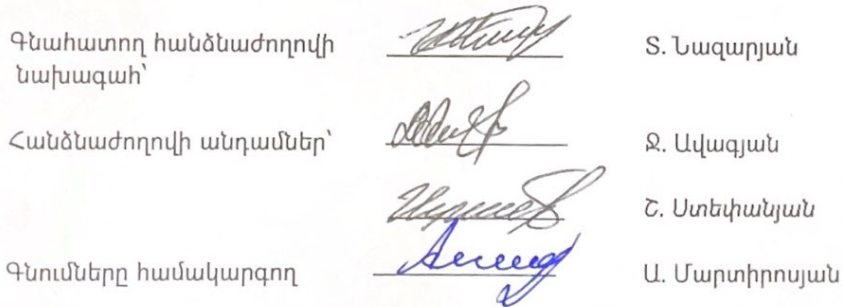 Գնահատող հանձնաժողովի
նախագահ՝
Տ. Նազարյան
Հանձնաժողովի անդամներ՝
Ջ. Ավագյան
Շ. Ստեփանյան
Գնումները համակարգող
Ա. Մարտիրոսյան